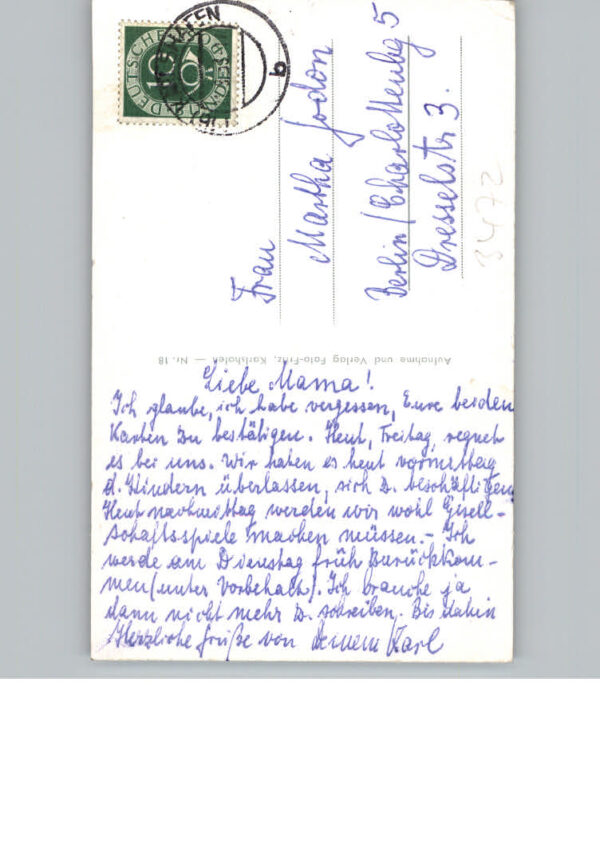 DEUTSCHE
10
Frau
Martha Jodon
Berlin/Charlottenbg 5
Dresselstr 3.
3472
Aufnahme und Verlag Foto-Fritz, Karlshafen — Nr. 18
Liebe Mama!
Ich glaube, ich habe vergessen, Eure beiden
Karten zu bestätigen. Heut, Freitag, regnet
es bei uns. Wir haben es heut vormittag
d. Kindern überlassen, sich z. beschäftigen
Heut nachmittag werden wir wohl Gesell-
schaftsspiele machen müssen. - Ich
werde am Dienstag früh zurückkom-
men (unter Vorbehalt). Ich brauche ja
dann nicht mehr z. schreiben. Bis dahin
Herzliche Grüße von Deinem Karl